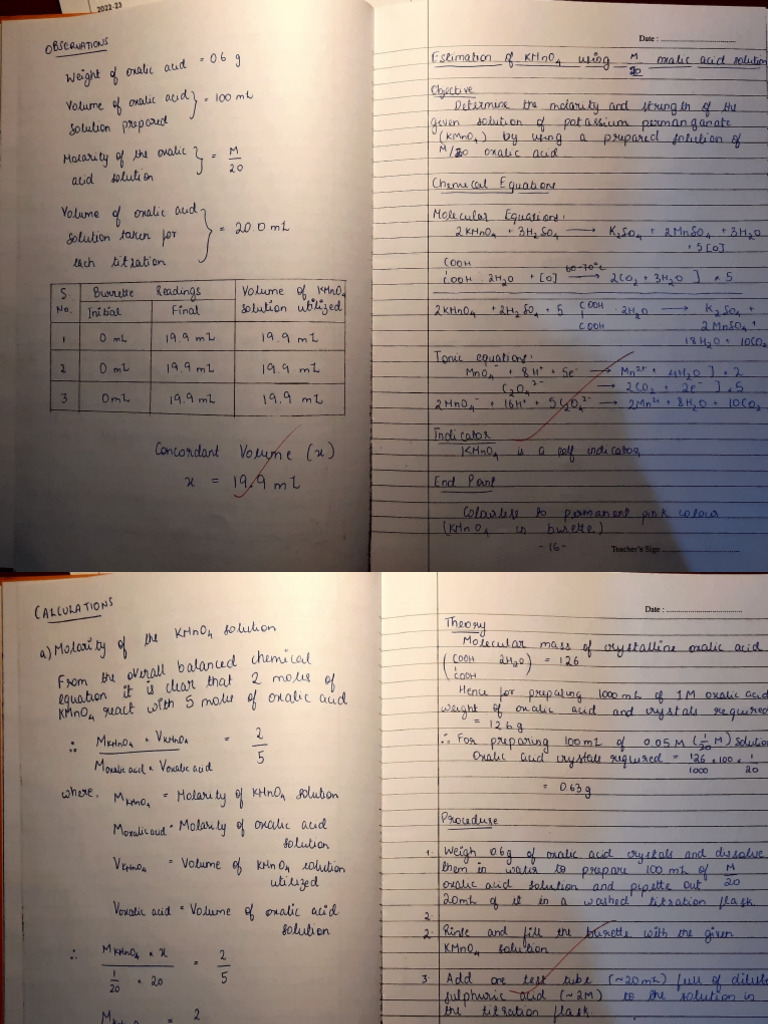 2022-23
OBSERVATIONS
Weight of oxalic acid = 0.6 g
Volume of oxalic acid solution prepared } = 100 mL
Molarity of the oxalic acid solution } = M/20
Volume of oxalic acid solution taken for each titration } = 20.0 mL
S. No. Burette Readings Volume of KMnO4 solution utilized
Initial Final
1 0 mL 19.9 mL 19.9 mL
2 0 mL 19.9 mL 19.9 mL
3 0 mL 19.9 mL 19.9 mL
Concordant Volume (x)
x = 19.9 mL
Date :
Estimation of KMnO4 using M/20 oxalic acid solution
Objective
Determine the molarity and strength of the
given solution of potassium permanganate
(KMnO4) by using a prepared solution of
M/20 oxalic acid
Chemical Equations
Molecular Equations:
2KMnO4 + 3H2SO4 → K2SO4 + 2MnSO4 + 3H2O
+ 5[O]
COOH
COOH 2H2O + [O] 60-70°C → 2CO2 + 3H2O ] × 5
2KMnO4 + 2H2SO4 + 5 COOH · 2H2O → K2SO4 +
COOH 2MnSO4 +
18H2O + 10CO2
Ionic equations:
MnO4⁻ + 8H⁺ + 5e⁻ → Mn²⁺ + 4H2O ] × 2
C2O4²⁻ → 2CO2 + 2e⁻ ] × 5
2MnO4⁻ + 16H⁺ + 5C2O4²⁻ → 2Mn²⁺ + 8H2O + 10CO2
Indicator
KMnO4 is a self indicator
End Point
Colourless to permanent pink colour
(KMnO4 in burette)
- 16 -
Teacher's Sign
CALCULATIONS
a) Molarity of the KMnO4 solution
From the overall balanced chemical
equation it is clear that 2 moles of
KMnO4 react with 5 moles of oxalic acid
∴ MKMnO4 × VKMnO4 / Moxalic acid × Voxalic acid = 2/5
where, MKMnO4 = Molarity of KMnO4 solution
Moxalic acid = Molarity of oxalic acid
solution
VKMnO4 = Volume of KMnO4 solution
utilized
Voxalic acid = Volume of oxalic acid
solution
∴ MKMnO4 × x / 1/20 × 20 = 2/5
2
Date :
Theory
Molecular mass of crystalline oxalic acid
(COOH 2H2O) = 126
COOH
Hence for preparing 1000 mL of 1M oxalic acid
weight of oxalic acid and crystals required
= 126g
∴ For preparing 100mL of 0.05 M (1/20 M) solution
Oxalic acid crystals required = 126/1000 × 100 × 1/20
= 0.63g
Procedure
1. Weigh 0.6g of oxalic acid crystals and dissolve
them in water to prepare 100 mL of M/20
oxalic acid solution and pipette out
20mL of it in a washed titration flask
2.
2. Rinse and fill the burette with the given
KMnO4 solution
3 Add one test tube (~20mL) full of dilute
sulphuric acid (~2M) to the solution in
the titration flask